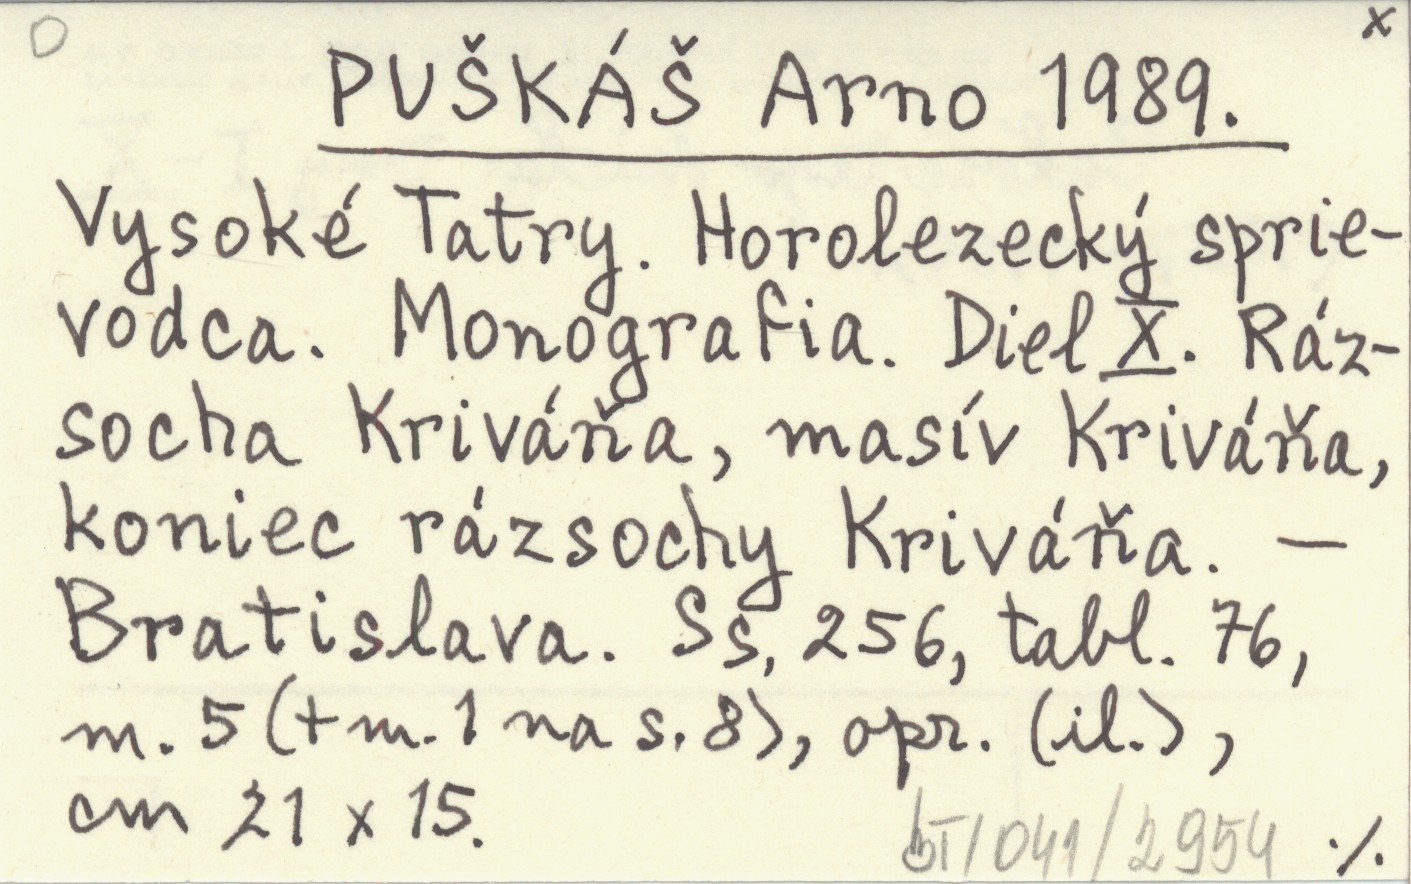 O x
PUŠKÁŠ Arno 1989.
Vysoké Tatry. Horolezecký sprie-
vodca. Monografia. Diel X. Ráz-
socha Kriváňa, masív Kriváňa,
koniec rázsochy Kriváňa. —
Bratislava. Ss, 256, tabl. 76,
m. 5 (+m. 1 na s. 8), opr. (il.),
cm 21 x 15.
/041/2954 ./.